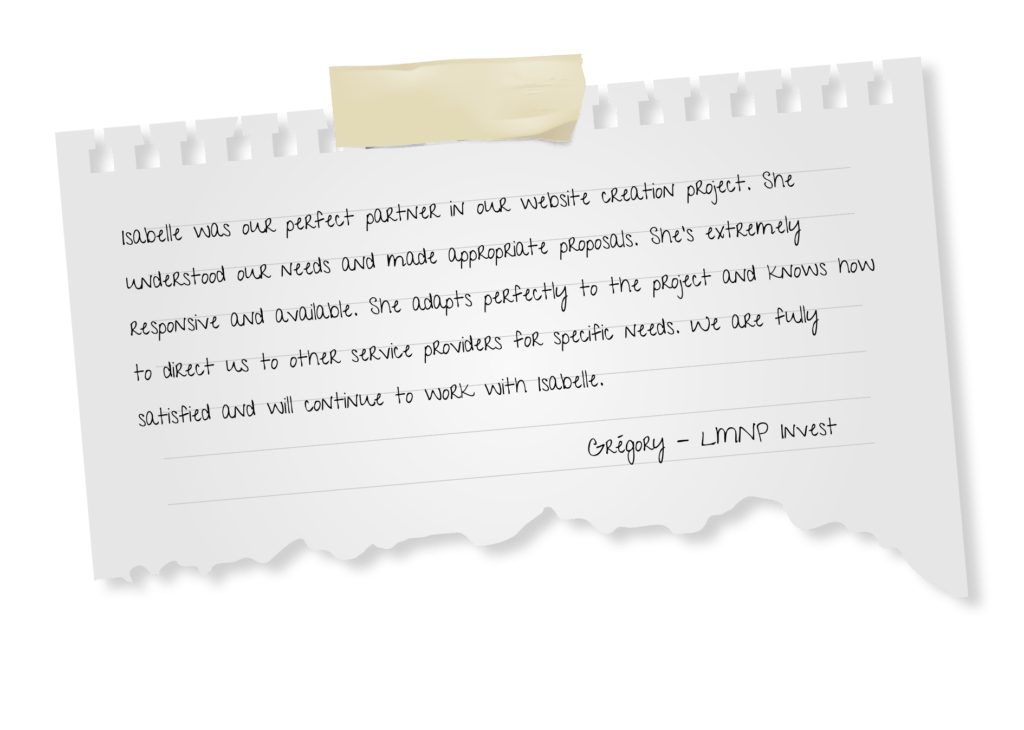 Isabelle was our perfect partner in our website creation project. She
understood our needs and made appropriate proposals. She's extremely
responsive and available. She adapts perfectly to the project and knows how
to direct us to other service providers for specific needs. We are fully
satisfied and will continue to work with Isabelle.
Grégory – LMNP Invest